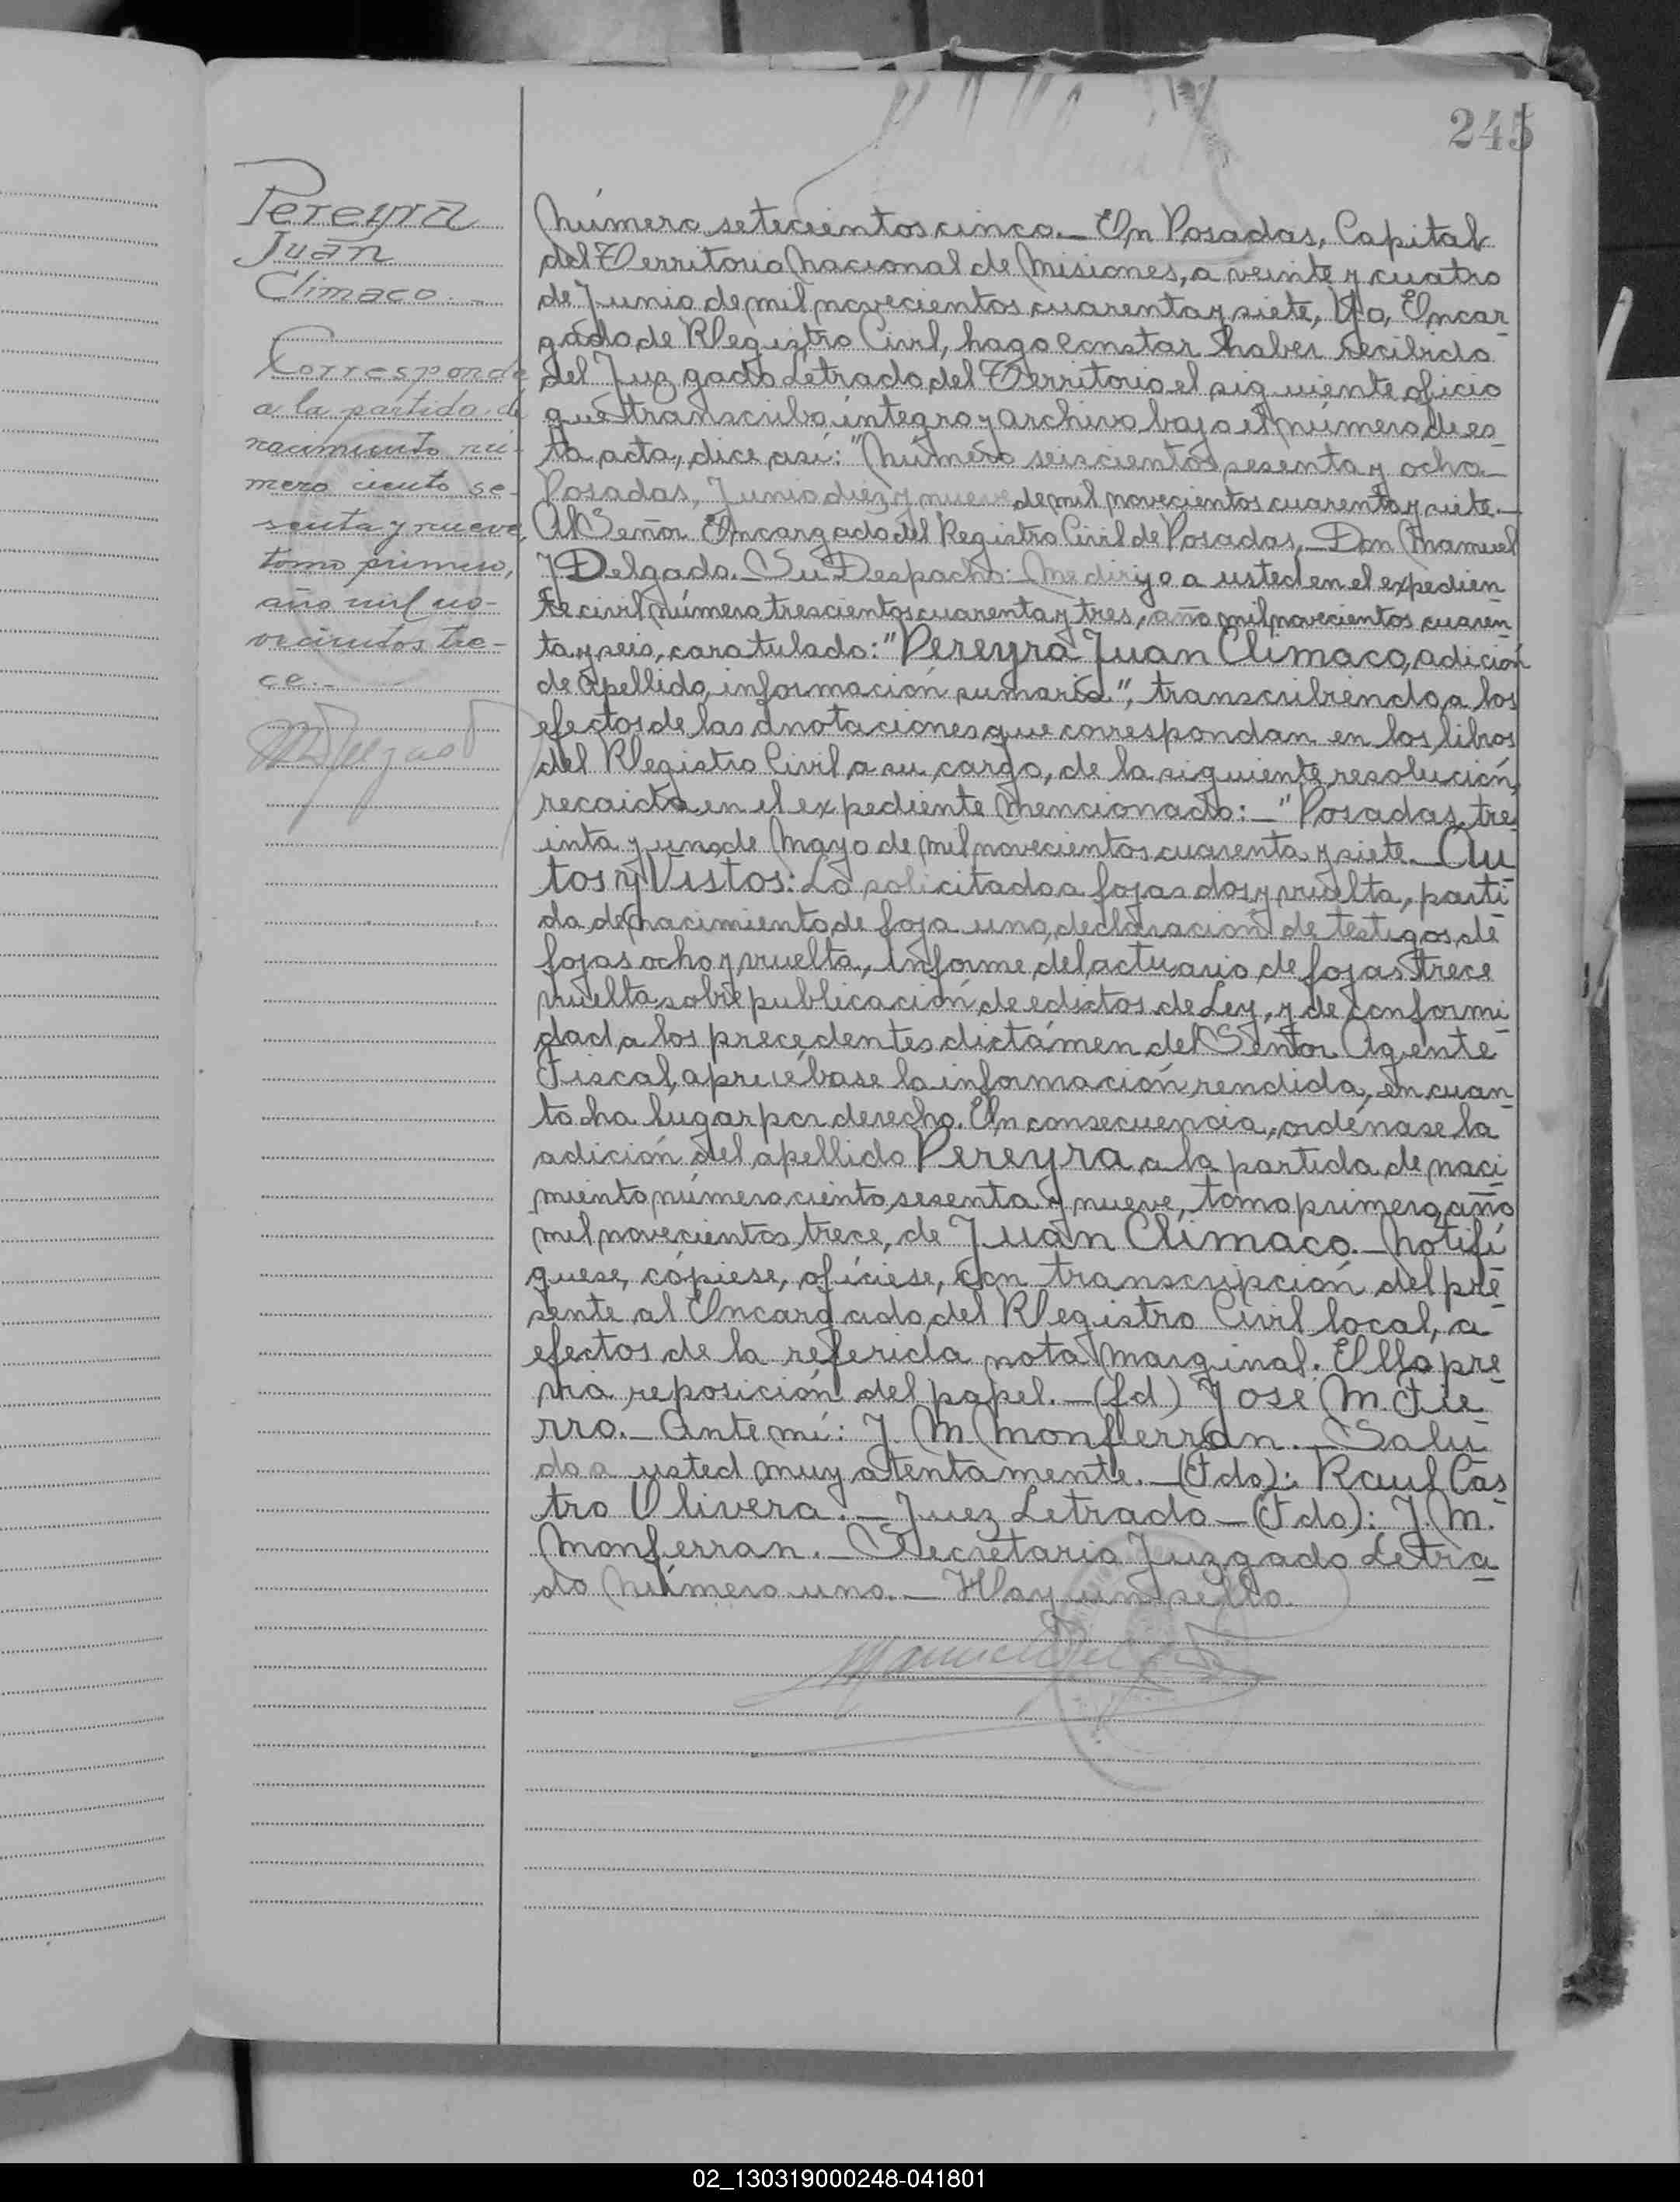 245
Pereyra
Juan
Climaco.-
Corresponde
a la partida de
nacimiento nú-
mero ciento se-
senta y nueve,
tomo primero,
año mil no-
vecientos tre-
ce.-
Número setecientos cinco.- En Posadas, Capital
del Territorio Nacional de Misiones, a veinte y cuatro
de Junio de mil novecientos cuarenta y siete, Yo, Encar-
gado de Registro Civil, hago constar haber recibido
del Juzgado Letrado del Territorio el siguiente oficio
que transcribo íntegro y archivo bajo el número de es-
ta acta, dice así: "Número seiscientos sesenta y ocho-
Posadas, Junio diez y nueve de mil novecientos cuarenta y siete.-
Al Señor Encargado del Registro Civil de Posadas,- Don Manuel
J Delgado.- Su Despacho: Me dirijo a usted en el expedien-
te civil número trescientos cuarenta y tres, año mil novecientos cuaren-
ta y seis, caratulado: "Pereyra Juan Climaco, adición
de apellido, información sumaria", transcribiendo, a los
efectos de las anotaciones que correspondan en los libros
del Registro Civil a su cargo, de la siguiente resolución,
recaida en el expediente mencionado:- "Posadas, tre-
inta y uno de Mayo de mil novecientos cuarenta y siete.- Au-
tos y Vistos: Lo solicitado a fojas dos y vuelta, parti-
da de nacimiento de foja uno, declaración de testigos de
fojas ocho y vuelta, informe del actuario de fojas trece
vuelta sobre publicación de edictos de Ley, y de conformi-
dad a los precedentes dictámen del Señor Agente
Fiscal, apruébase la información rendida, en cuan-
to ha lugar por derecho. En consecuencia, ordénase la
adición del apellido Pereyra a la partida de naci-
miento número ciento sesenta y nueve, tomo primero, año
mil novecientos trece, de Juan Climaco.- Notifí-
quese, cópiese, ofíciese, con transcripción del pre-
sente al Encargado del Registro Civil local, a
efectos de la referida nota marginal. Ello pre-
via reposición del papel.- (fd) José M. Fie-
rro.- Ante mí: J. M. Monferrán.- Salu-
do a usted muy atentamente.- (Fdo): Raul Cas-
tro Olivera.- Juez Letrado- (Fdo): J. M.
Monferran.- Secretario Juzgado Letra-
do Número uno.- Hay un sello.
02_130319000248-041801